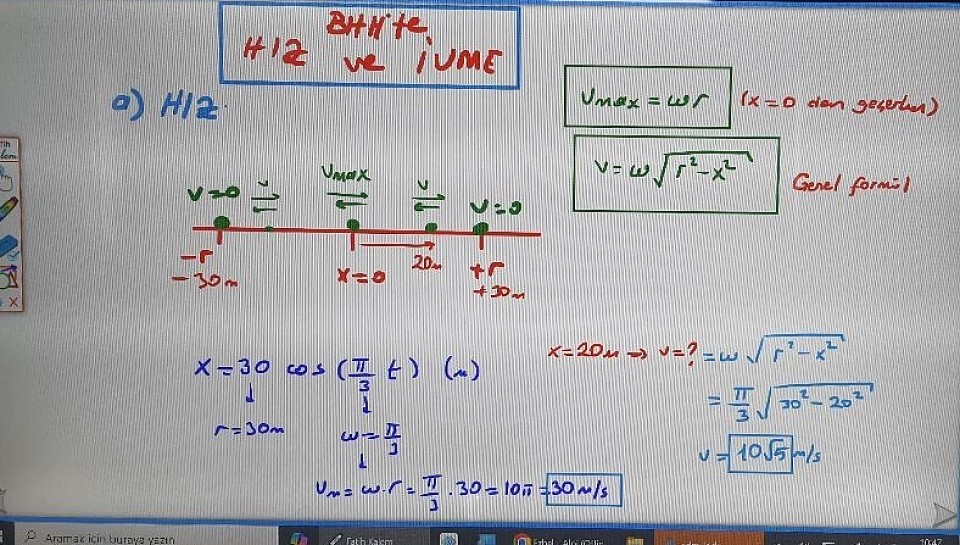 BHH'te
HIZ ve İVME
a) HIZ.
Vmax = ωr (x=0 dan geçerken)
v = ω√(r²-x²) Genel formül
v=0 v Vmax v v=0
-r x=0 20m +r
-30m +30m
x = 30 cos (π/3 t) (m)
r=30m ω=π/3
Vm = ω.r = π/3 . 30 = 10π = 30 m/s
x=20m → v=? = ω√(r²-x²)
= π/3 √(30²-20²)
v = 10√5 m/s
Aramak için buraya yazın
Fatih Kalem
10:47